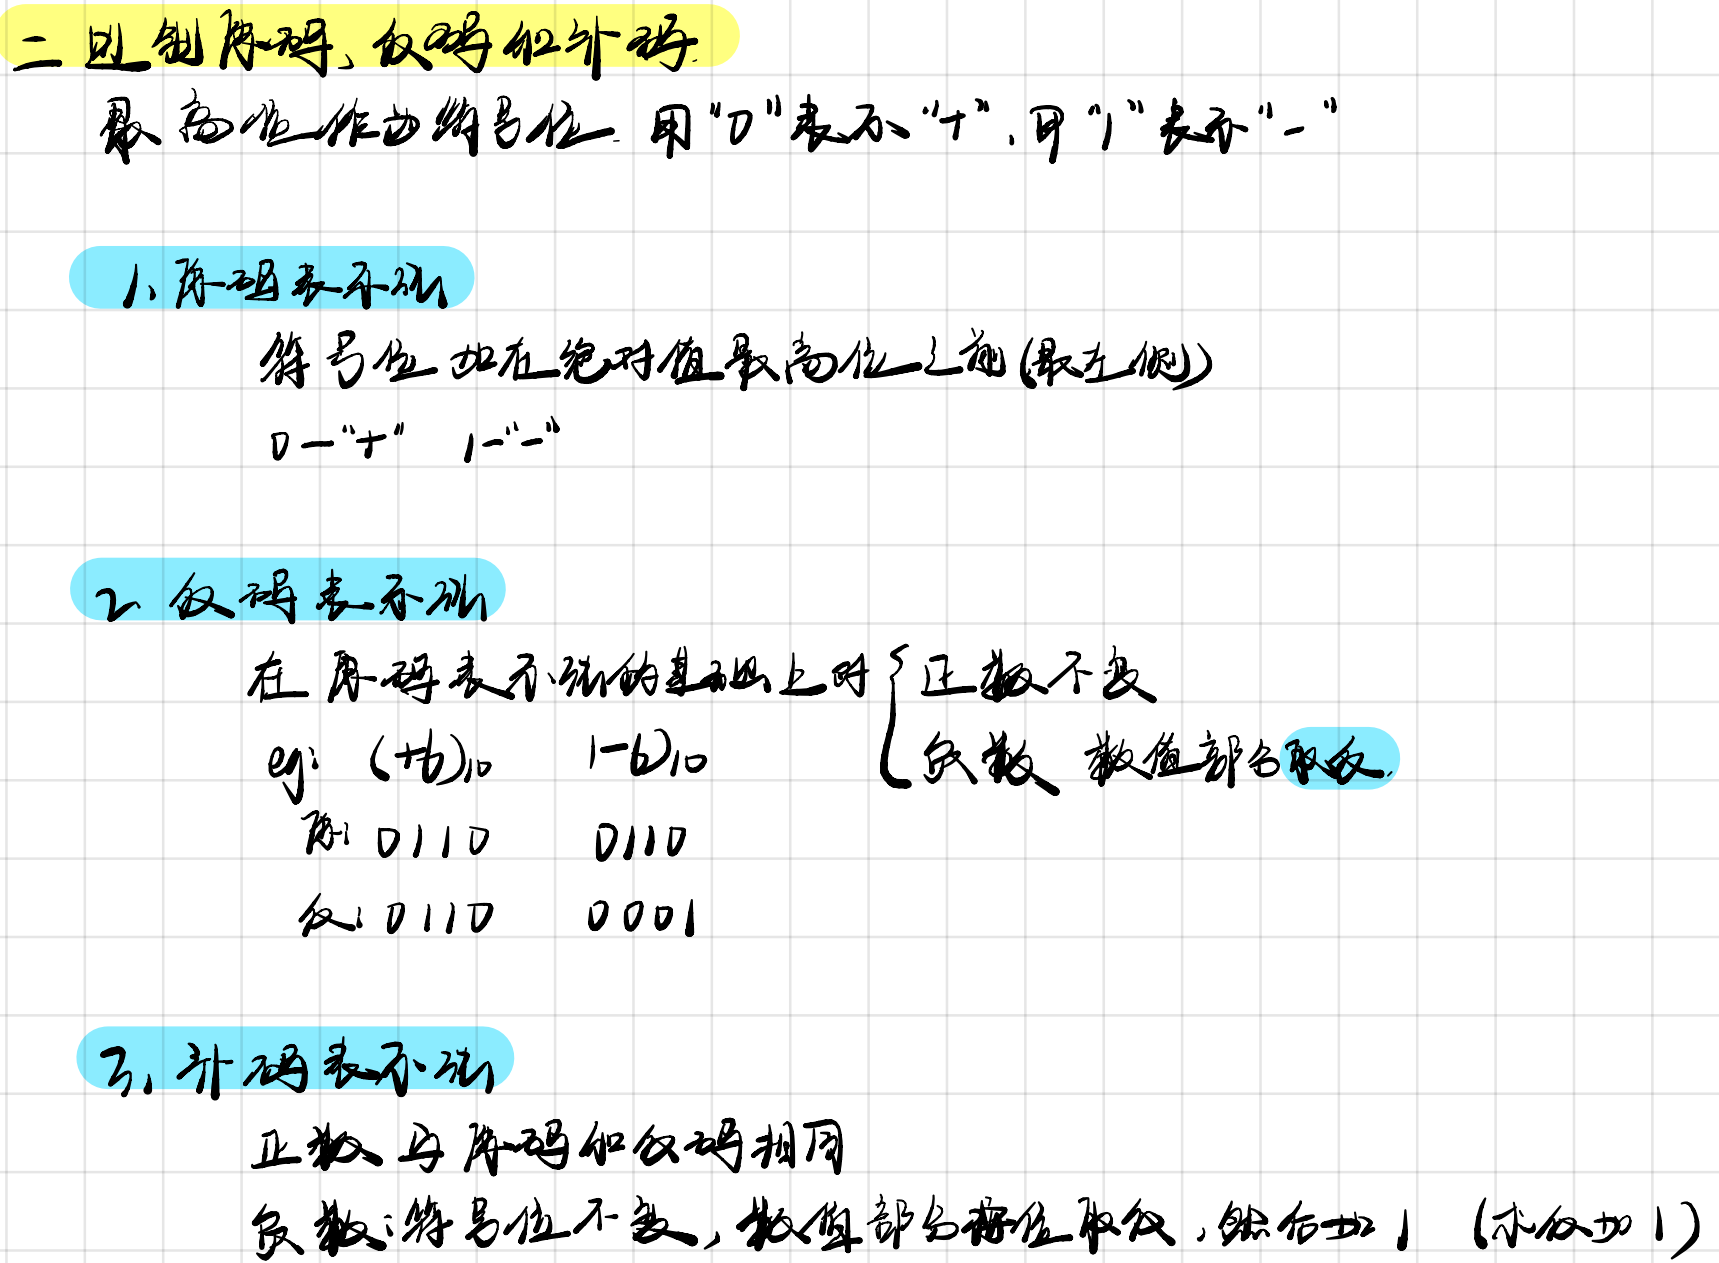 二进制原码、反码和补码.
最高位作为符号位. 用“0”表示“+”, 用“1”表示“-”
1、原码表示法
符号位加在绝对值最高位之前(最左侧)
0—“+” 1—“-”
2 反码表示法
在原码表示法的基础上对{正数不变
eg: (+6)10 1-6)10 负数 数值部分取反.
原: 0110 0110
反: 0110 0001
3、补码表示法
正数与原码和反码相同
负数:符号位不变,数值部分按位取反,然后加1 (求反加1)